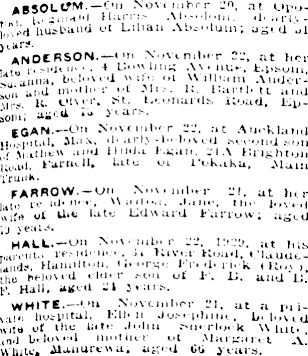 ABSOLUM.—On November 20, at Opo-
tiki, Reginald Harris Absolum, dearly-
loved husband of Lilian Absolum; aged 51
years.
ANDERSON.—On November 22, at her
late residence, 4 Bowling Avenue, Epsom,
Susanna, beloved wife of William Ander-
son and mother of Mrs. R. Bartlett and
Mrs. R. Olver, St. Leonards Road, Ep-
som; aged 75 years.
EGAN.—On November 22, at Auckland
Hospital, Max, dearly-beloved second son
of Mathew and Hilda Egan, 21A Brighton
Road, Parnell, late of Pokaka, Main
Trunk.
FARROW.—On November 21, at her
late residence, Waitoa, Jane, the loved
wife of the late Edward Farrow; aged
75 years.
HALL.—On November 22, 1929, at his
parents' residence, River Road, Claude-
lands, Hamilton, George Frederick (Roy),
the beloved elder son of F. B. and E.
F. Hall, aged 21 years.
WHITE.—On November 21, at a pri-
vate hospital, Ellen Josephine, beloved
wife of the late John Sherlock White,
and beloved mother of Margaret
White, Manurewa; aged 66 years.